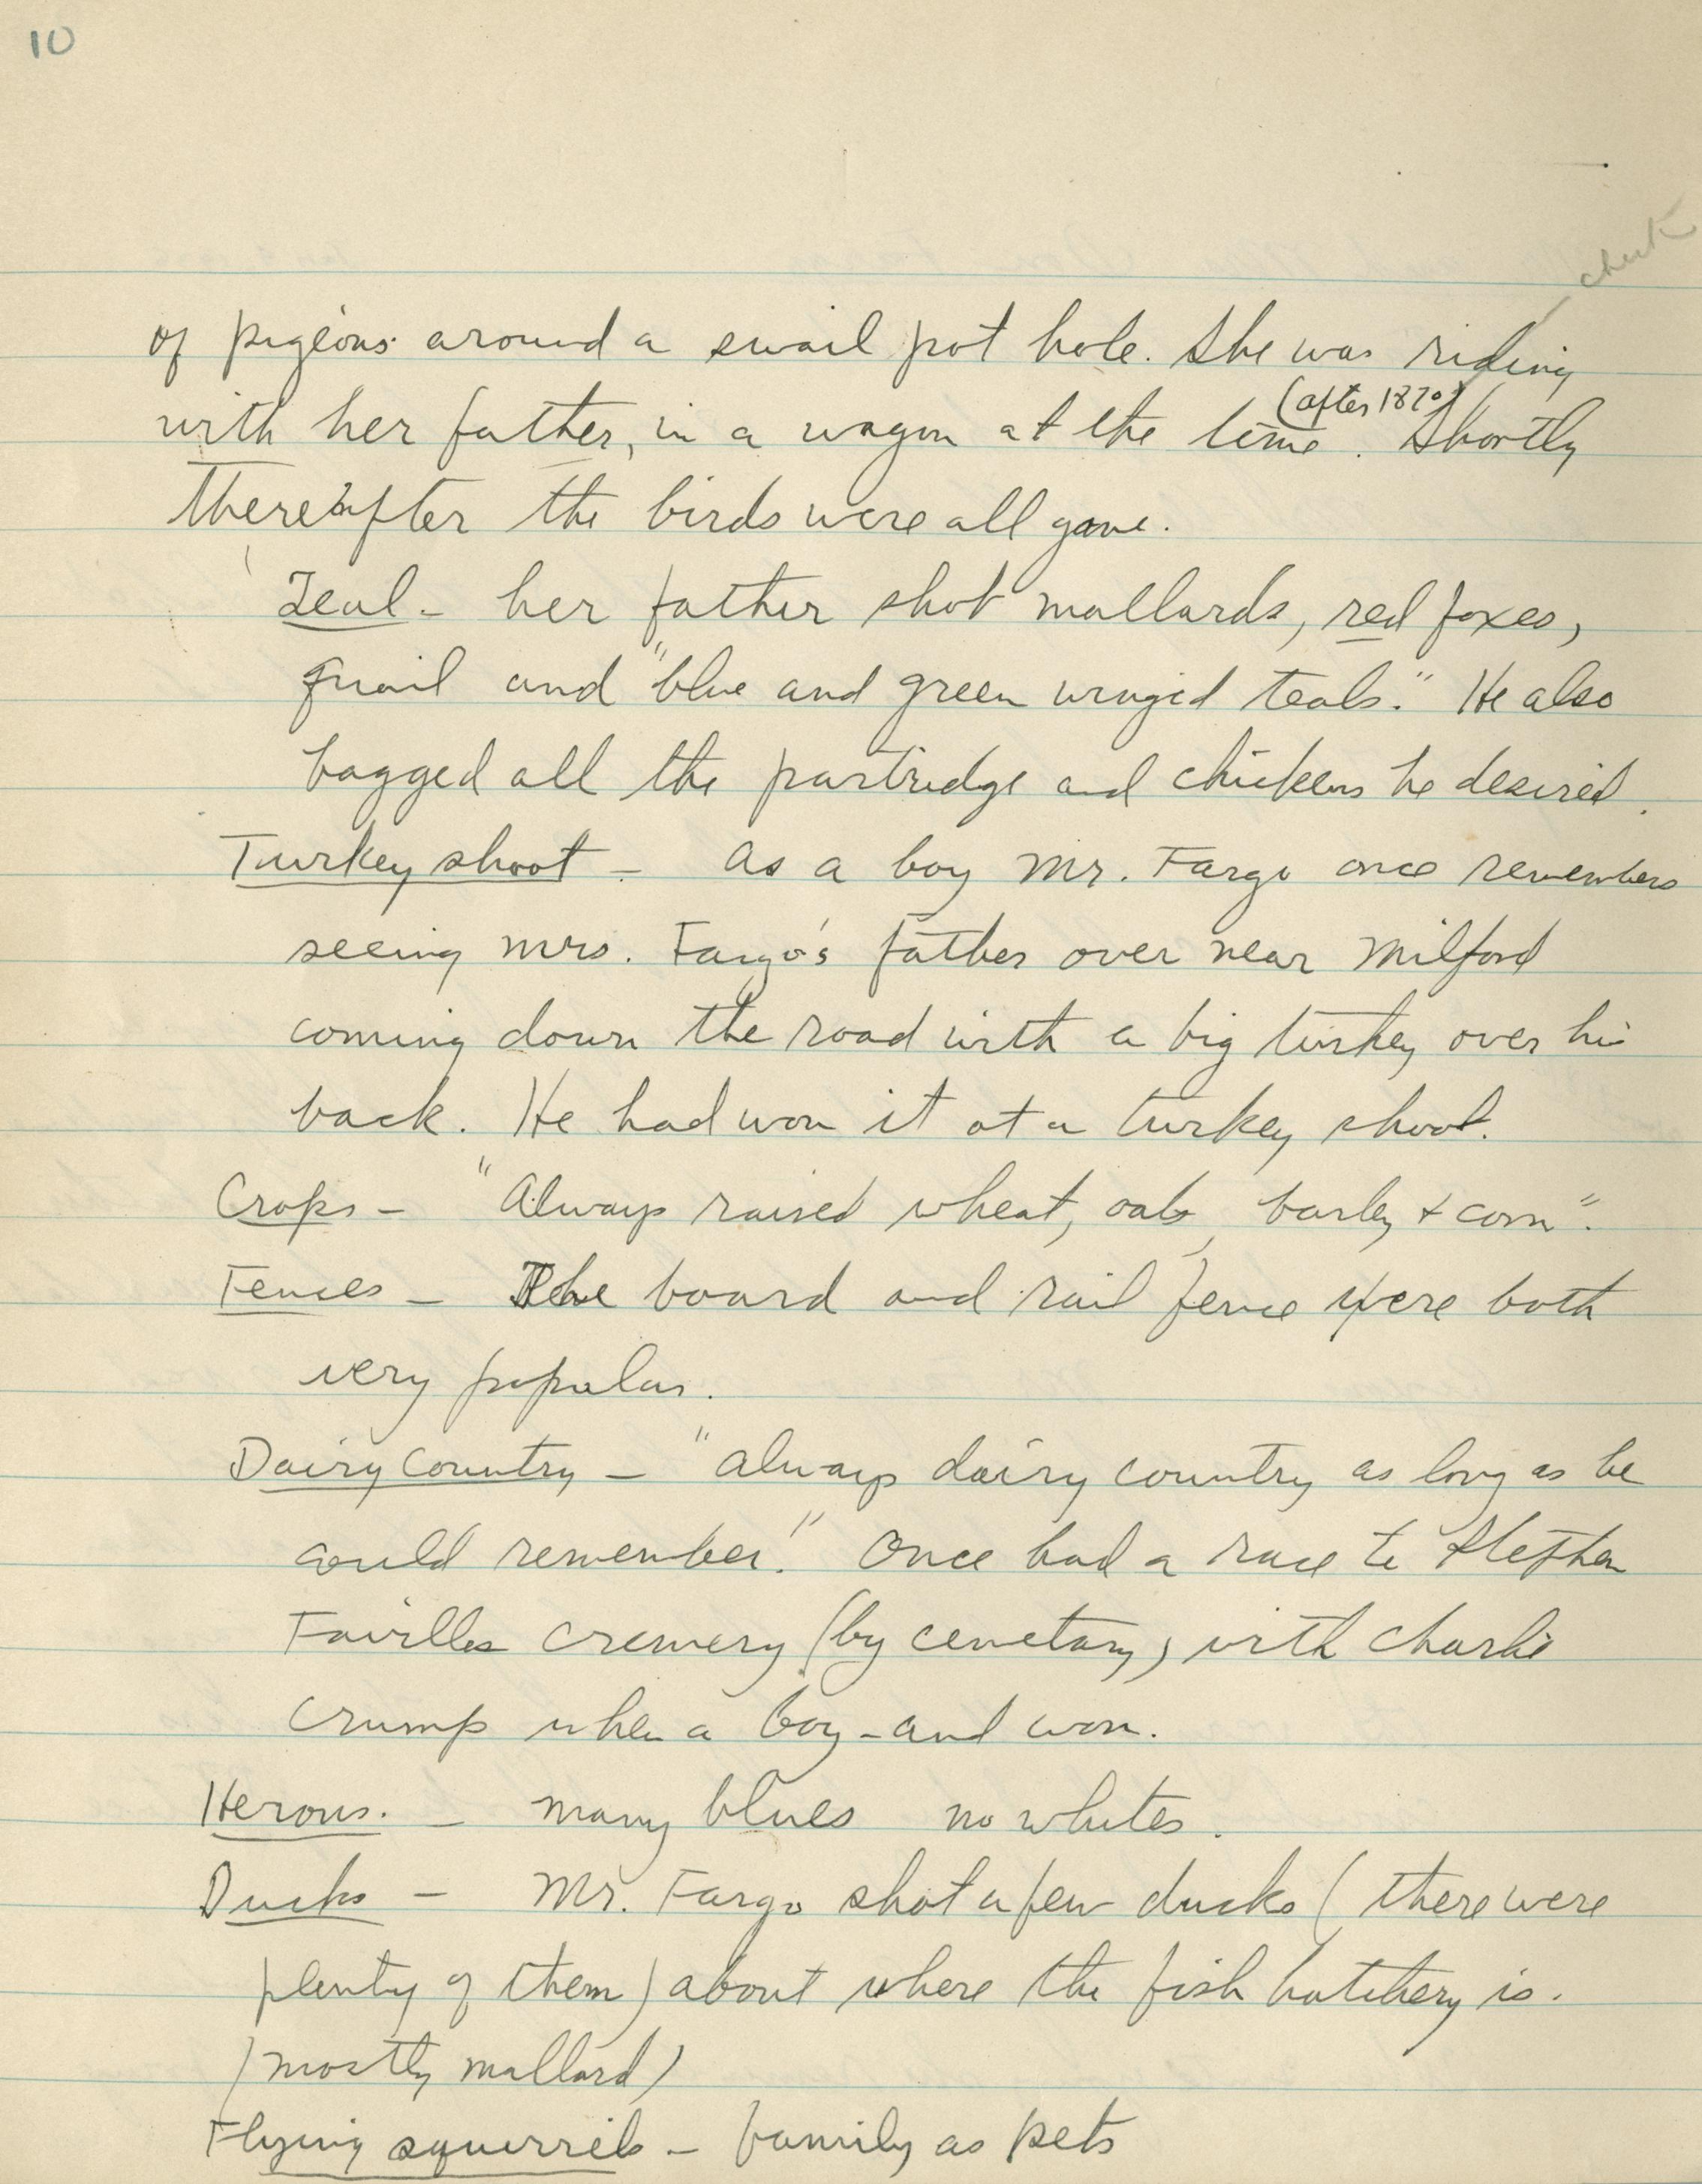 10
check
of pigeons around a small pot hole. She was riding
(after 1870)
with her father, in a wagon at the time. Shortly
thereafter the birds were all gone.
Teal - her father shot mallards, red foxes,
quail and "blue and green winged teals." He also
bagged all the partridge and chickens he desired.
Turkey shoot - As a boy Mr. Fargo once remembers
seeing Mrs. Fargo's father over near Milford
coming down the road with a big turkey over his
back. He had won it at a turkey shoot.
Crops - "Always raised wheat, oats, barley + corn".
Fences - The board and rail fence were both
very popular.
Dairy Country - "always dairy country as long as he
could remember." Once had a race to Stephen
Favilles cremery (by cemetary) with Charlie
Crump when a boy - and won.
Herons. - many blues no whites.
Ducks - Mr. Fargo shot a few ducks (there were
plenty of them) about where the fish hatchery is.
(mostly mallard)
Flying squirrels - family as pets